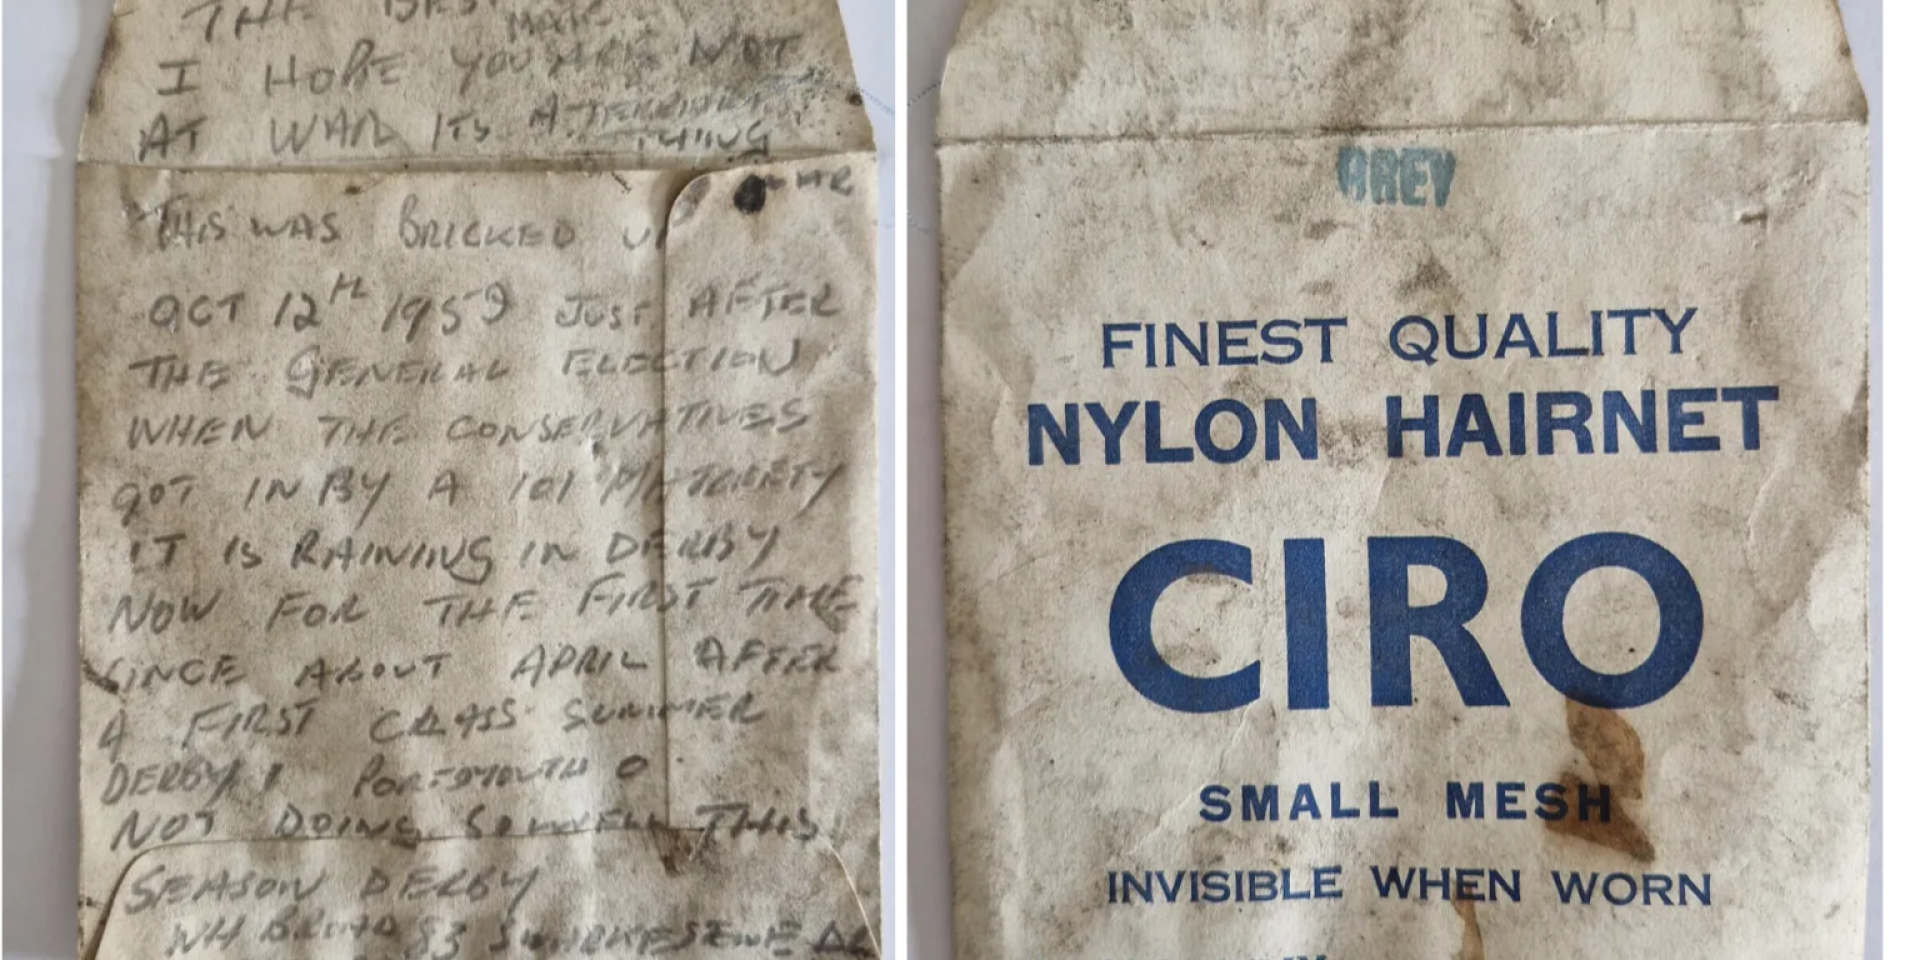 THE BEST
MATE
I HOPE YOU ARE NOT
AT WAR ITS A TERRIBLE
THING
THIS WAS BRICKED UP
OCT 12TH 1959 JUST AFTER
THE GENERAL ELECTION
WHEN THE CONSERVATIVES
GOT IN BY A 101 MAJORETY
IT IS RAINING IN DERBY
NOW FOR THE FIRST TIME
SINCE ABOUT APRIL AFTER
A FIRST CLASS SUMMER
DERBY 1 PORTSMOUTH 0
NOT DOING SO WELL THIS
SEASON DERBY
WH BROAD 83
GREY
FINEST QUALITY
NYLON HAIRNET
CIRO
SMALL MESH
INVISIBLE WHEN WORN